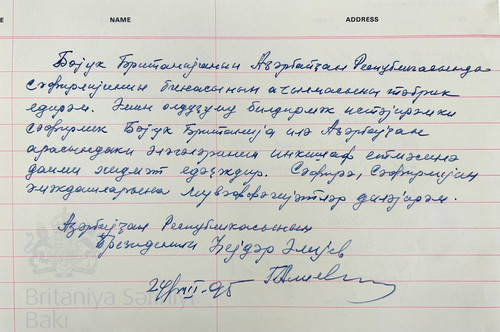 NAME ADDRESS
Бөјүк Британијанын Азәрбајҹан Республикасында
сәфирлијинин бинасынын ачылмасыны тәбрик
едирәм. Әмин олдуғуму билдирмәк истәјирәмки
сәфирлик Бөјүк Британија илә Азәрбајҹан
арасындакы әлагәләринин инкишаф етмәсинә
даими хидмәт едәҹәкдир. Сәфирә, сәфирлијин
әмәкдашларына мүвәффәгијјәтләр диләјирәм.
Азәрбајҹан Республикасынын
Президенти Һејдәр Әлијев
24/VIII-95
Britaniya Səfirliyi
Bakı